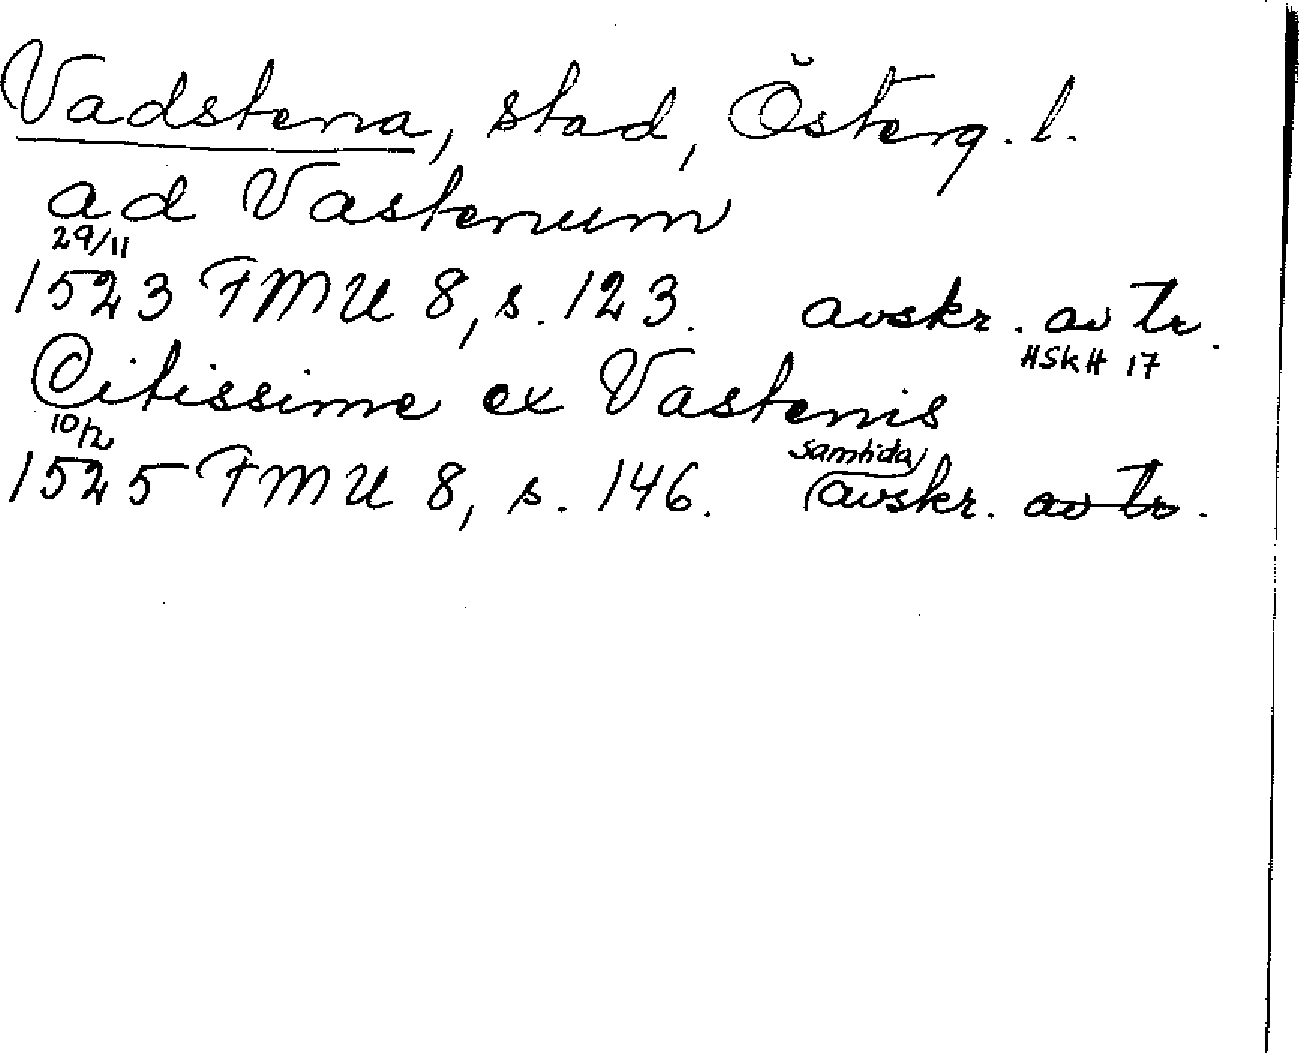 Vadstena, stad, Österg. l.
ad Vastenum
29/11
1523 FMU 8, s. 123. avskr. av tr.
HSkH 17
Citissime ex Vastenis
10/2 samtida
1525 FMU 8, s. 146. avskr. av tr.